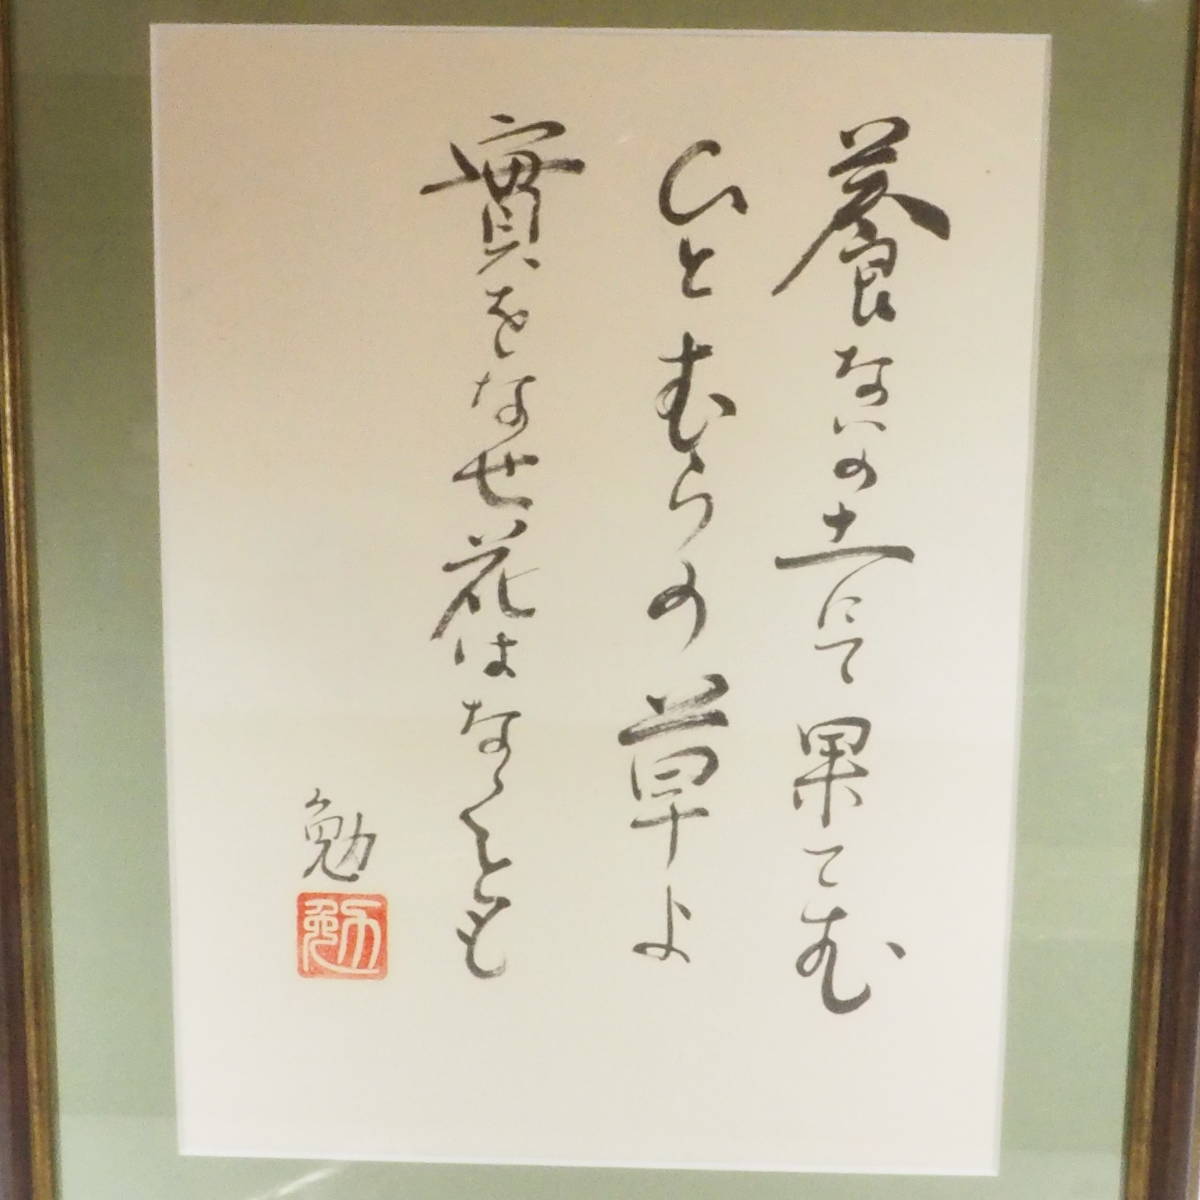 養ないの土にて果てむ
ひとむらの草よ
實をなせ花はなくとも
勉
勉